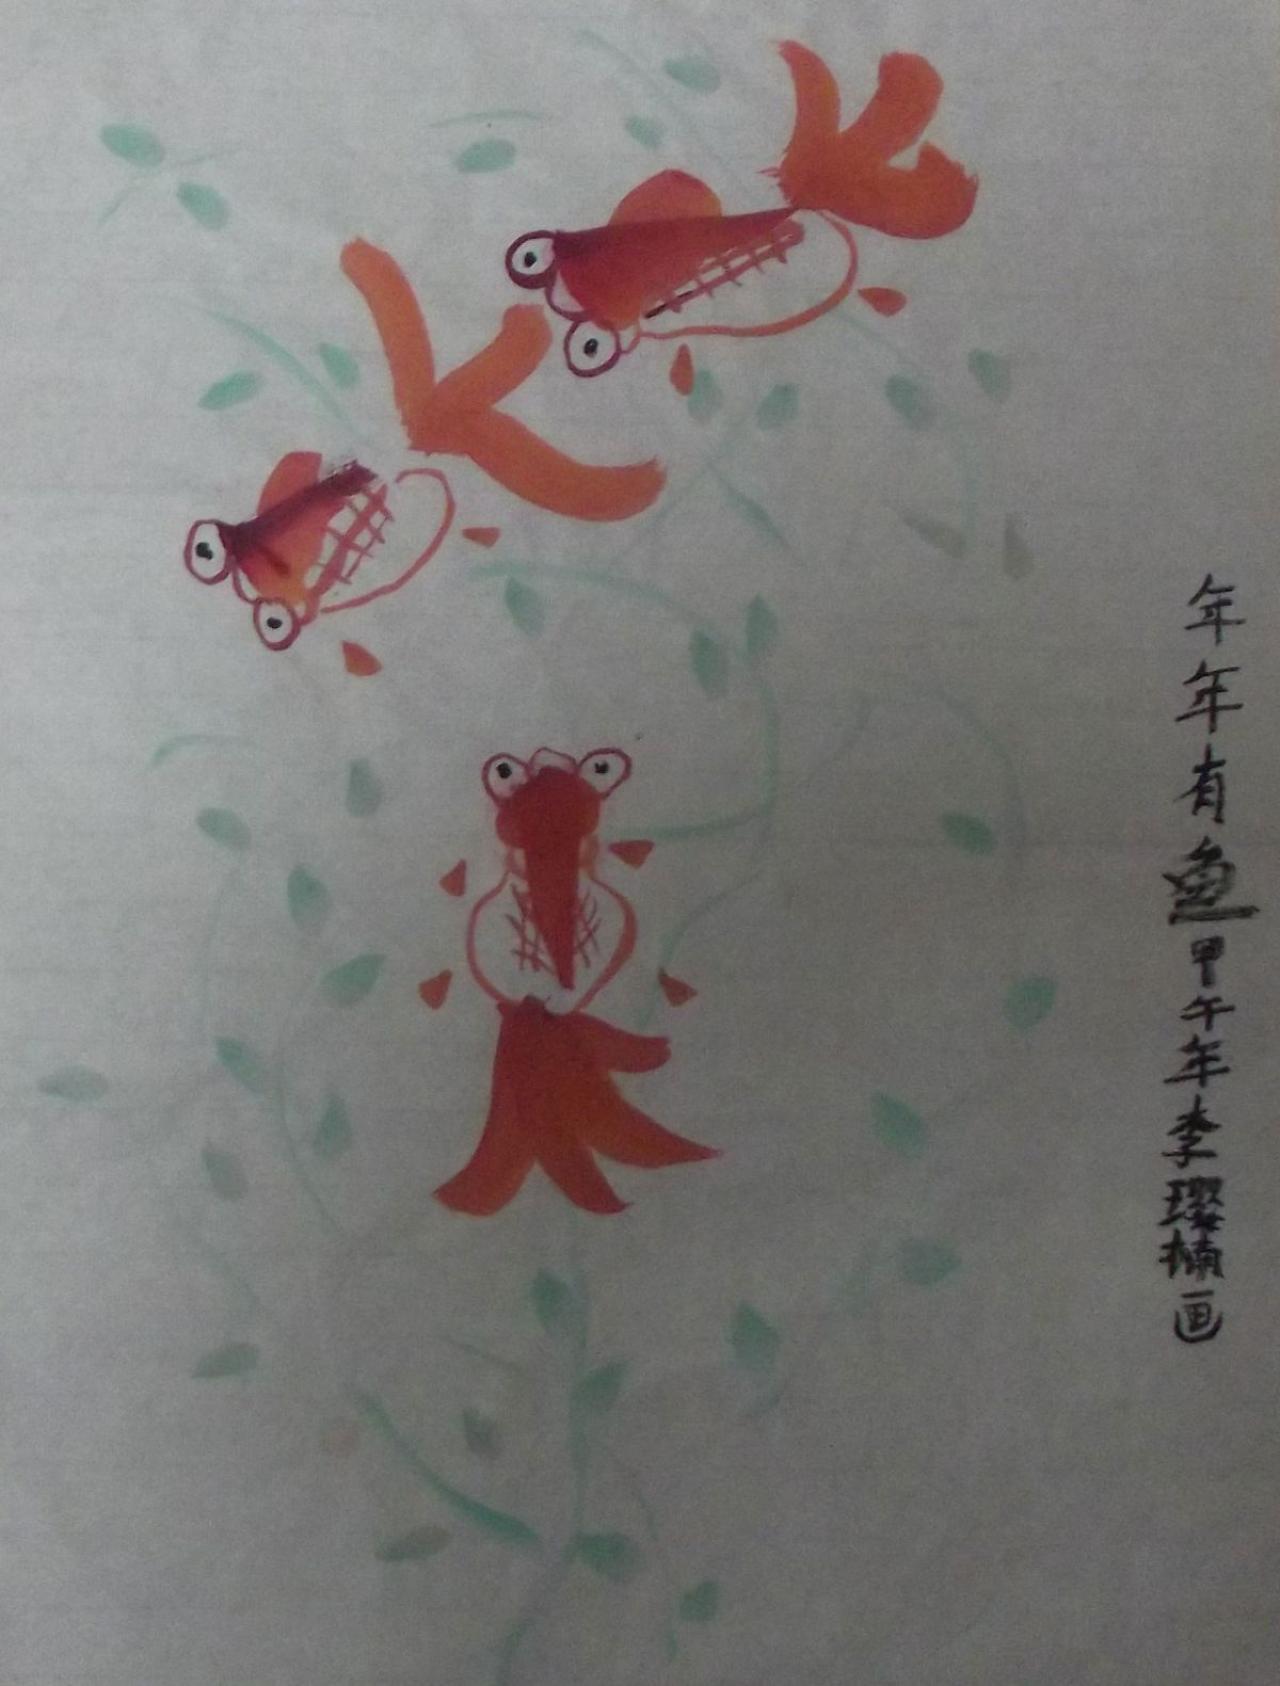 年年有鱼甲午年李璎楠画